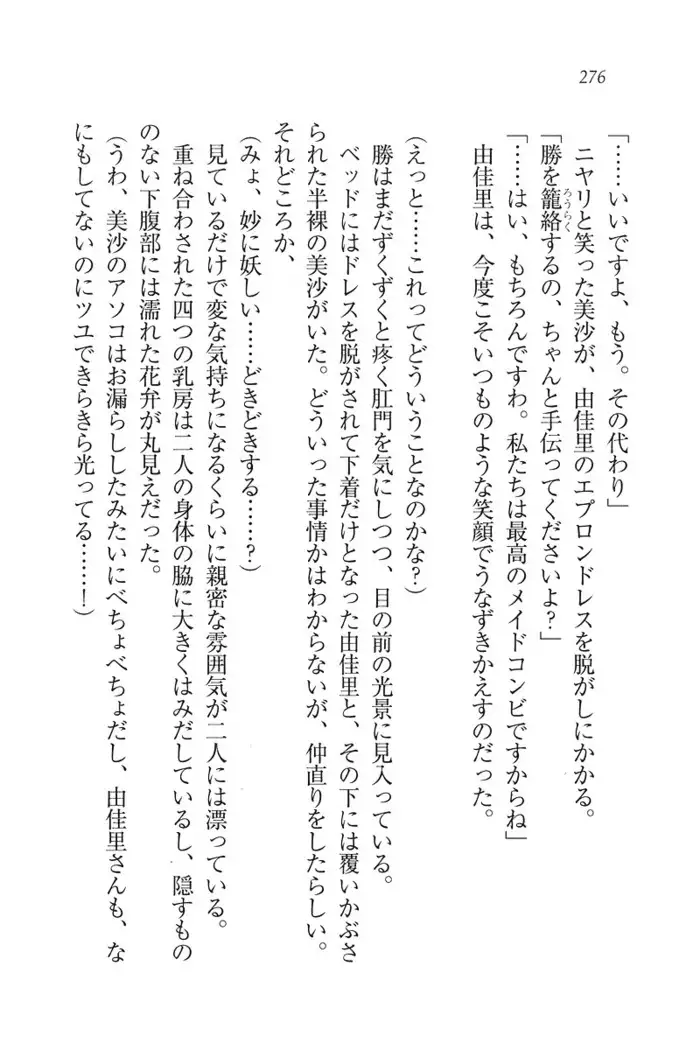 276
「……いいですよ、もう。その代わり」
ニヤリと笑った美沙が、由佳里のエプロンドレスを脱がしにかかる。
「勝を籠絡するの、ちゃんと手伝ってくださいよ？」
ろうらく
「……はい、もちろんですわ。私たちは最高のメイドコンビですからね」
由佳里は、今度こそいつものような笑顔でうなずきかえすのだった。
（えっと……これってどういうことなのかな？）
勝はまだずくずくと疼く肛門を気にしつつ、目の前の光景に見入っている。
ベッドにはドレスを脱がされて下着だけとなった由佳里と、その下には覆いかぶさ
られた半裸の美沙がいた。どういった事情かはわからないが、仲直りをしたらしい。
それどころか、
（みょ、妙に妖しい……どきどきする……？）
見ているだけで変な気持ちになるくらいに親密な雰囲気が二人には漂っている。
重ね合わされた四つの乳房は二人の身体の脇に大きくはみだしているし、隠すもの
のない下腹部には濡れた花弁が丸見えだった。
（うわ、美沙のアソコはお漏らししたみたいにべちょべちょだし、由佳里さんも、な
にもしてないのにツユできらきら光ってる……！）